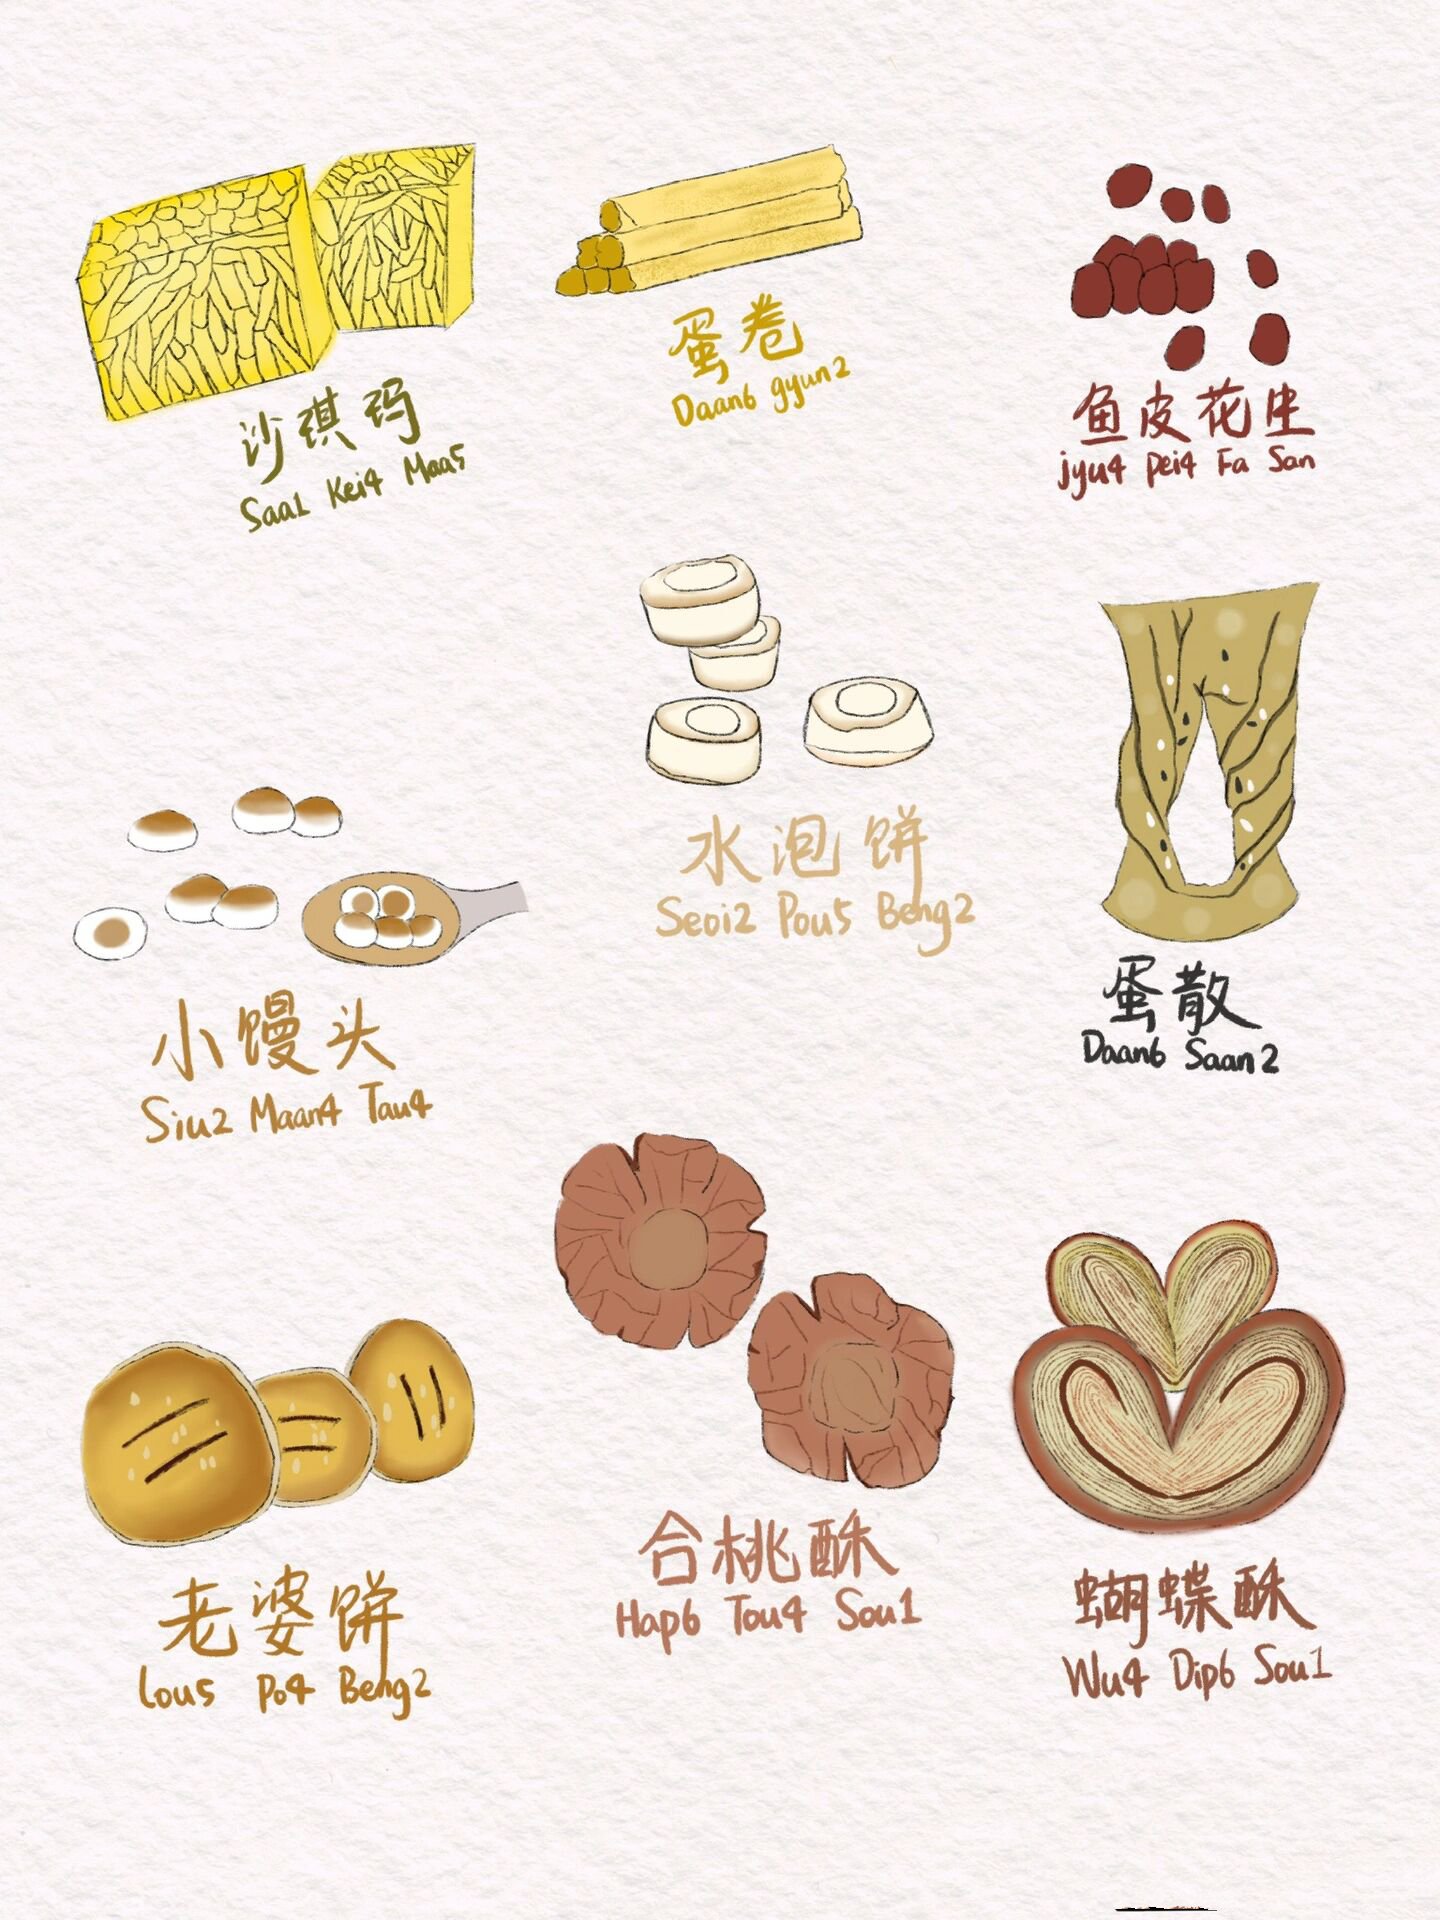 沙琪玛
Saa1 Kei4 Maa5
蛋卷
Daan6 gyun2
鱼皮花生
jyu4 pei4 Fa San
小馒头
Siu2 Maan4 Tau4
水泡饼
Seoi2 Pou5 Beng2
蛋散
Daan6 Saan2
老婆饼
lou5 Po4 Beng2
合桃酥
Hap6 Tou4 Sou1
蝴蝶酥
Wu4 Dip6 Sou1